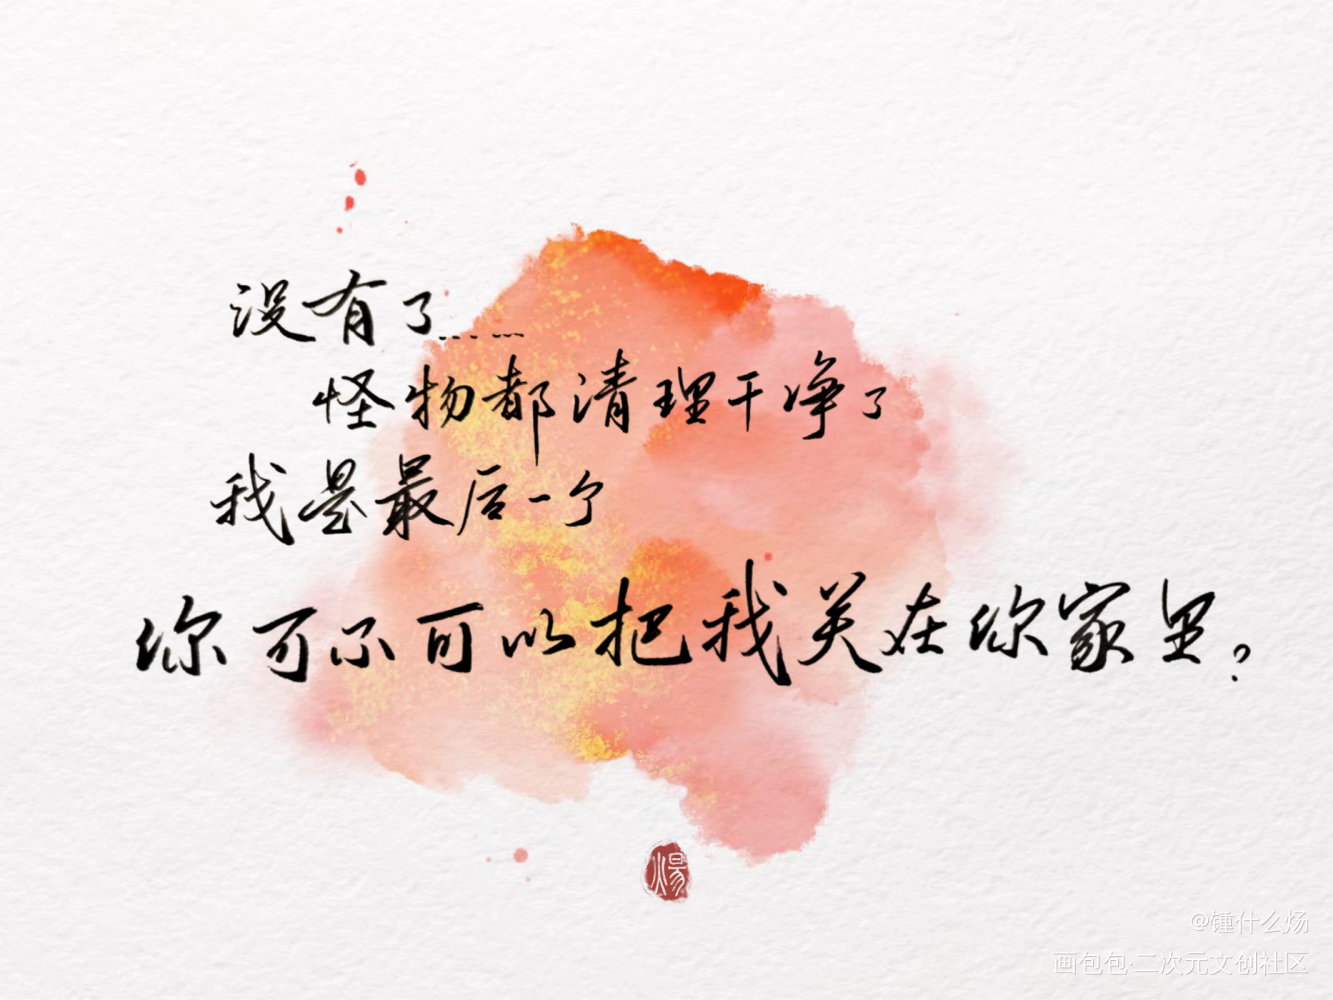 没有了……
怪物都清理干净了
我是最后一个
你可不可以把我关在你家里？
煬
@锺什么炀
画包包·二次元文创社区